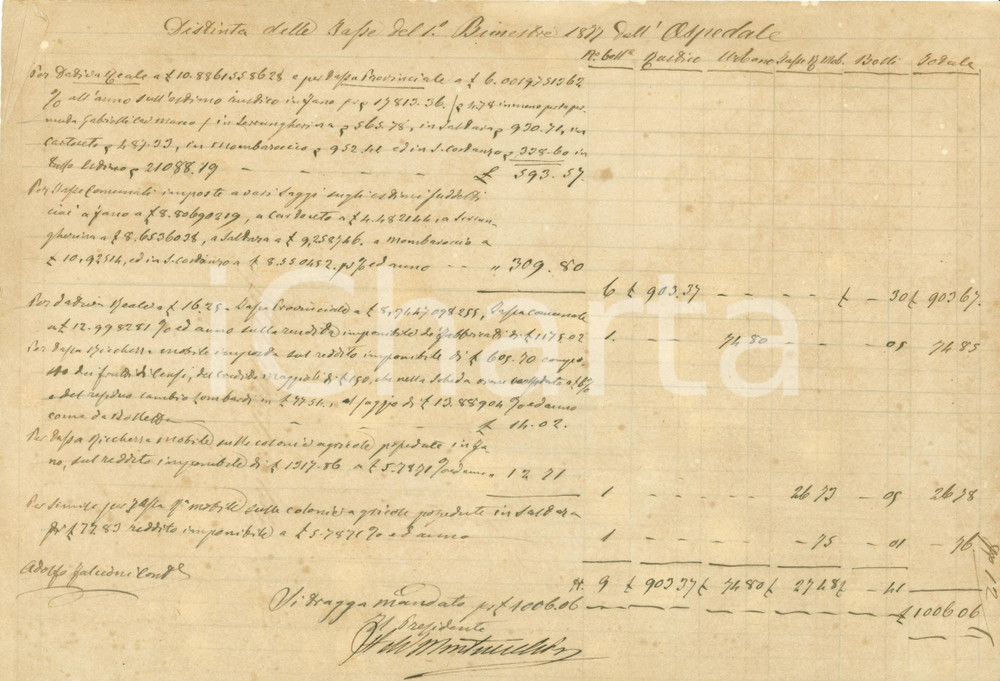 Distinta delle Tasse del 1.° Bimestre 1877 dell'Ospedale
N. boll.e Rustico Urbano Tassa R. Mob. Bolli Totale
Per Dativa Reale a £ 10.8861558628 e per Tassa Provinciale a £ 6.0019751362
% all'anno sull'estimo rustico in Fano
muda Gabrielli Cav. Marco in Serrungherina 565.78, in Saltara 930.71, in
Cartoceto 487.33, in Mombaroccio 952. ed in S. Costanzo 338.60 in
tutto 21088.19 — — — £ 593.57.
Per Tasse Comunali imposte a varj saggi sugli estimi suddetti
cioè a Fano a £ 8.80690219, a Cartoceto a £ 4.482144, a Serrun-
gherina a £ 8.6536038, a Saltara a £ 9,258746. a Mombaroccio a
£ 10,92514, ed in S. Costanzo a £ 8.550452. p% ed anno — " 309.80
6 £ 903.37 — — — — £ — 30 £ 903 67.
Per Dativa Reale a £ 16.25 Tassa Provinciale a £ 8,9447098255, Tassa Comunale
a £ 12.998251 % ed anno sulla rendita imponibile de' Fabbricati di £ 1178.02 1 — — — 74.80 — — — 05 74.85
Per Tassa Ricchezza mobile imposta sul reddito imponibile di £ 605.70 compo-
sto dei frutti di Censi, del £ 150, che nella Scheda
e del residuo cambio Lombardi in £ 77.51. al saggio di £ 13.88904 % ed anno
come da Bolletta — — — £ 14.02.
Per Tassa Ricchezza mobile sulle colonie agricole possedute in Fa-
no, sul reddito imponibile di £ 1317.86 a £ 5.7871 % ed anno " 12 71
1 — — — — 26 73 — 05 26.78
Per simile per Tassa R.a mobile sulle colonie agricole possedute in Saltara
di £ 77.83 reddito imponibile a £ 5.7871 % ed anno 1 — — — — — 75 — 01 — 76.
Adolfo Cont.e
N. 9 £ 903.37 £ 74.80 £ 27.48 £ — 41
Si tragga mandato per £ 1006.06 — — — — £ 1006.06
Il Presidente
iCharta